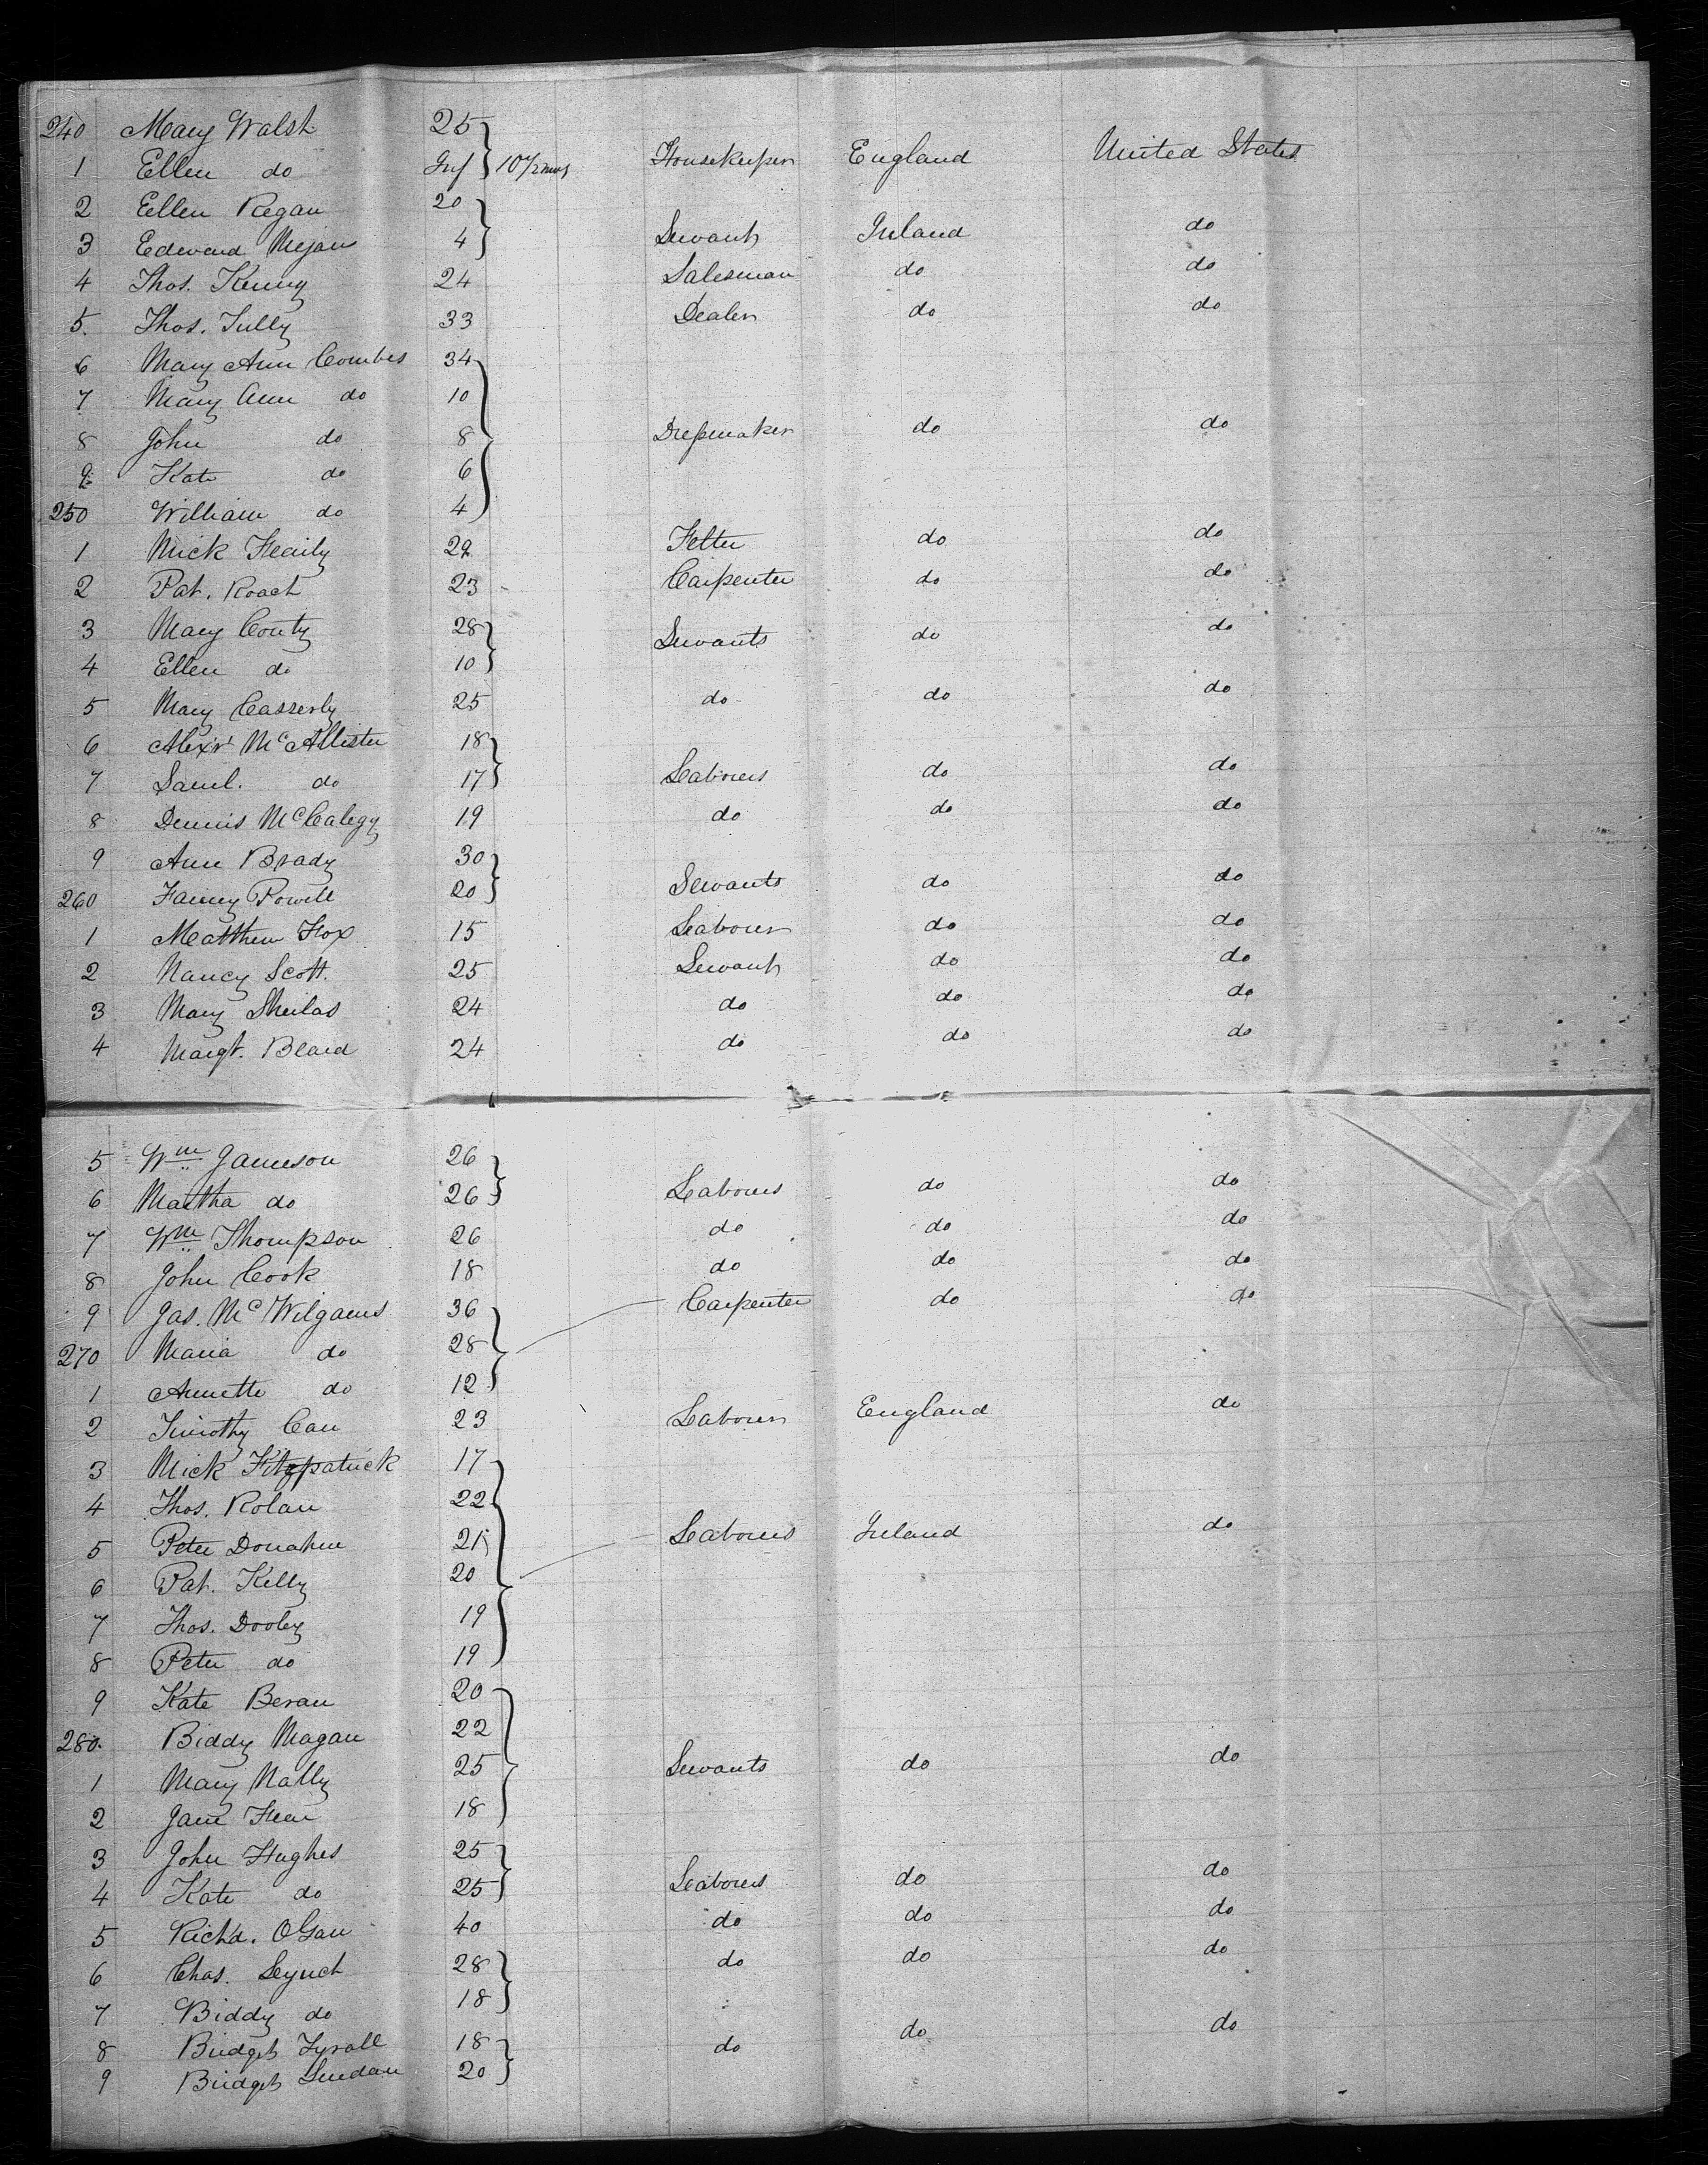 240 Mary Walsh 25
1 Ellen do Inf 10 1/2 mos Housekeeper England United States
2 Ellen Regan 20
3 Edward 4 Servant Ireland do
4 Thos. Kenny 24 Salesman do do
5. Thos. Tully 33 Dealer do do
6 Mary Ann Combes 34
7 Mary Ann do 10
8 John do 8 Dressmaker do do
9 Kate do 6
250 William do 4
1 Mick 29 do do
2 Pat. Roach 23 Carpenter do do
3 Mary 28 Servants do do
4 Ellen do 10
5 Mary Casserly 25 do do do
6 Alexr McAllister 18
7 Saml. do 17 Labourers do do
8 Dennis 19 do do do
9 Ann Brady 30
260 Fanny Powell 20 Servants do do
1 Matthew Fox 15 Labourer do do
2 Nancy Scott. 25 Servant do do
3 Mary 24 do do do
4 Margt. 24 do do do
5 Wm Jameson 26
6 Martha do 26 Labourers do do
7 Wm Thompson 26 do do do
8 John Cook 18 do do do
9 Jas. 36 Carpenter do do
270 Maria do 28
1 Annette do 12
2 Timothy 23 Labourer England do
3 Mick Fitzpatrick 17
4 Thos. 22
5 Peter Donahue 21 Labourers Ireland do
6 Pat. Kelly 20
7 Thos. Dooley 19
8 Peter do 19
9 Kate 20
280. Biddy Magan 22
1 Mary Nally 25 Servants do do
2 Jane 18
3 John Hughes 25
4 Kate do 25 Labourers do do
5 Richd. 40 do do do
6 Chas. Lynch 28 do do do
7 Biddy do 18
8 Bridget 18 do do do
9 Bridget 20